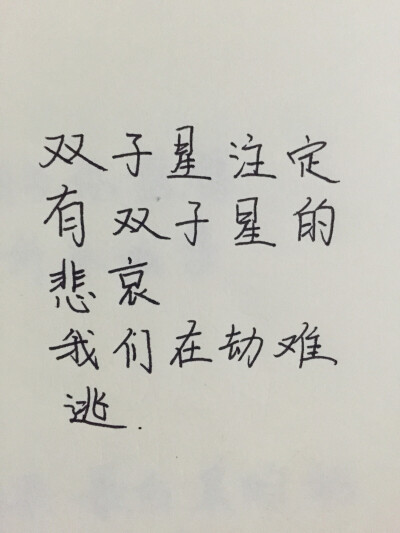 双子星注定
有双子星的
悲哀
我们在劫难
逃.